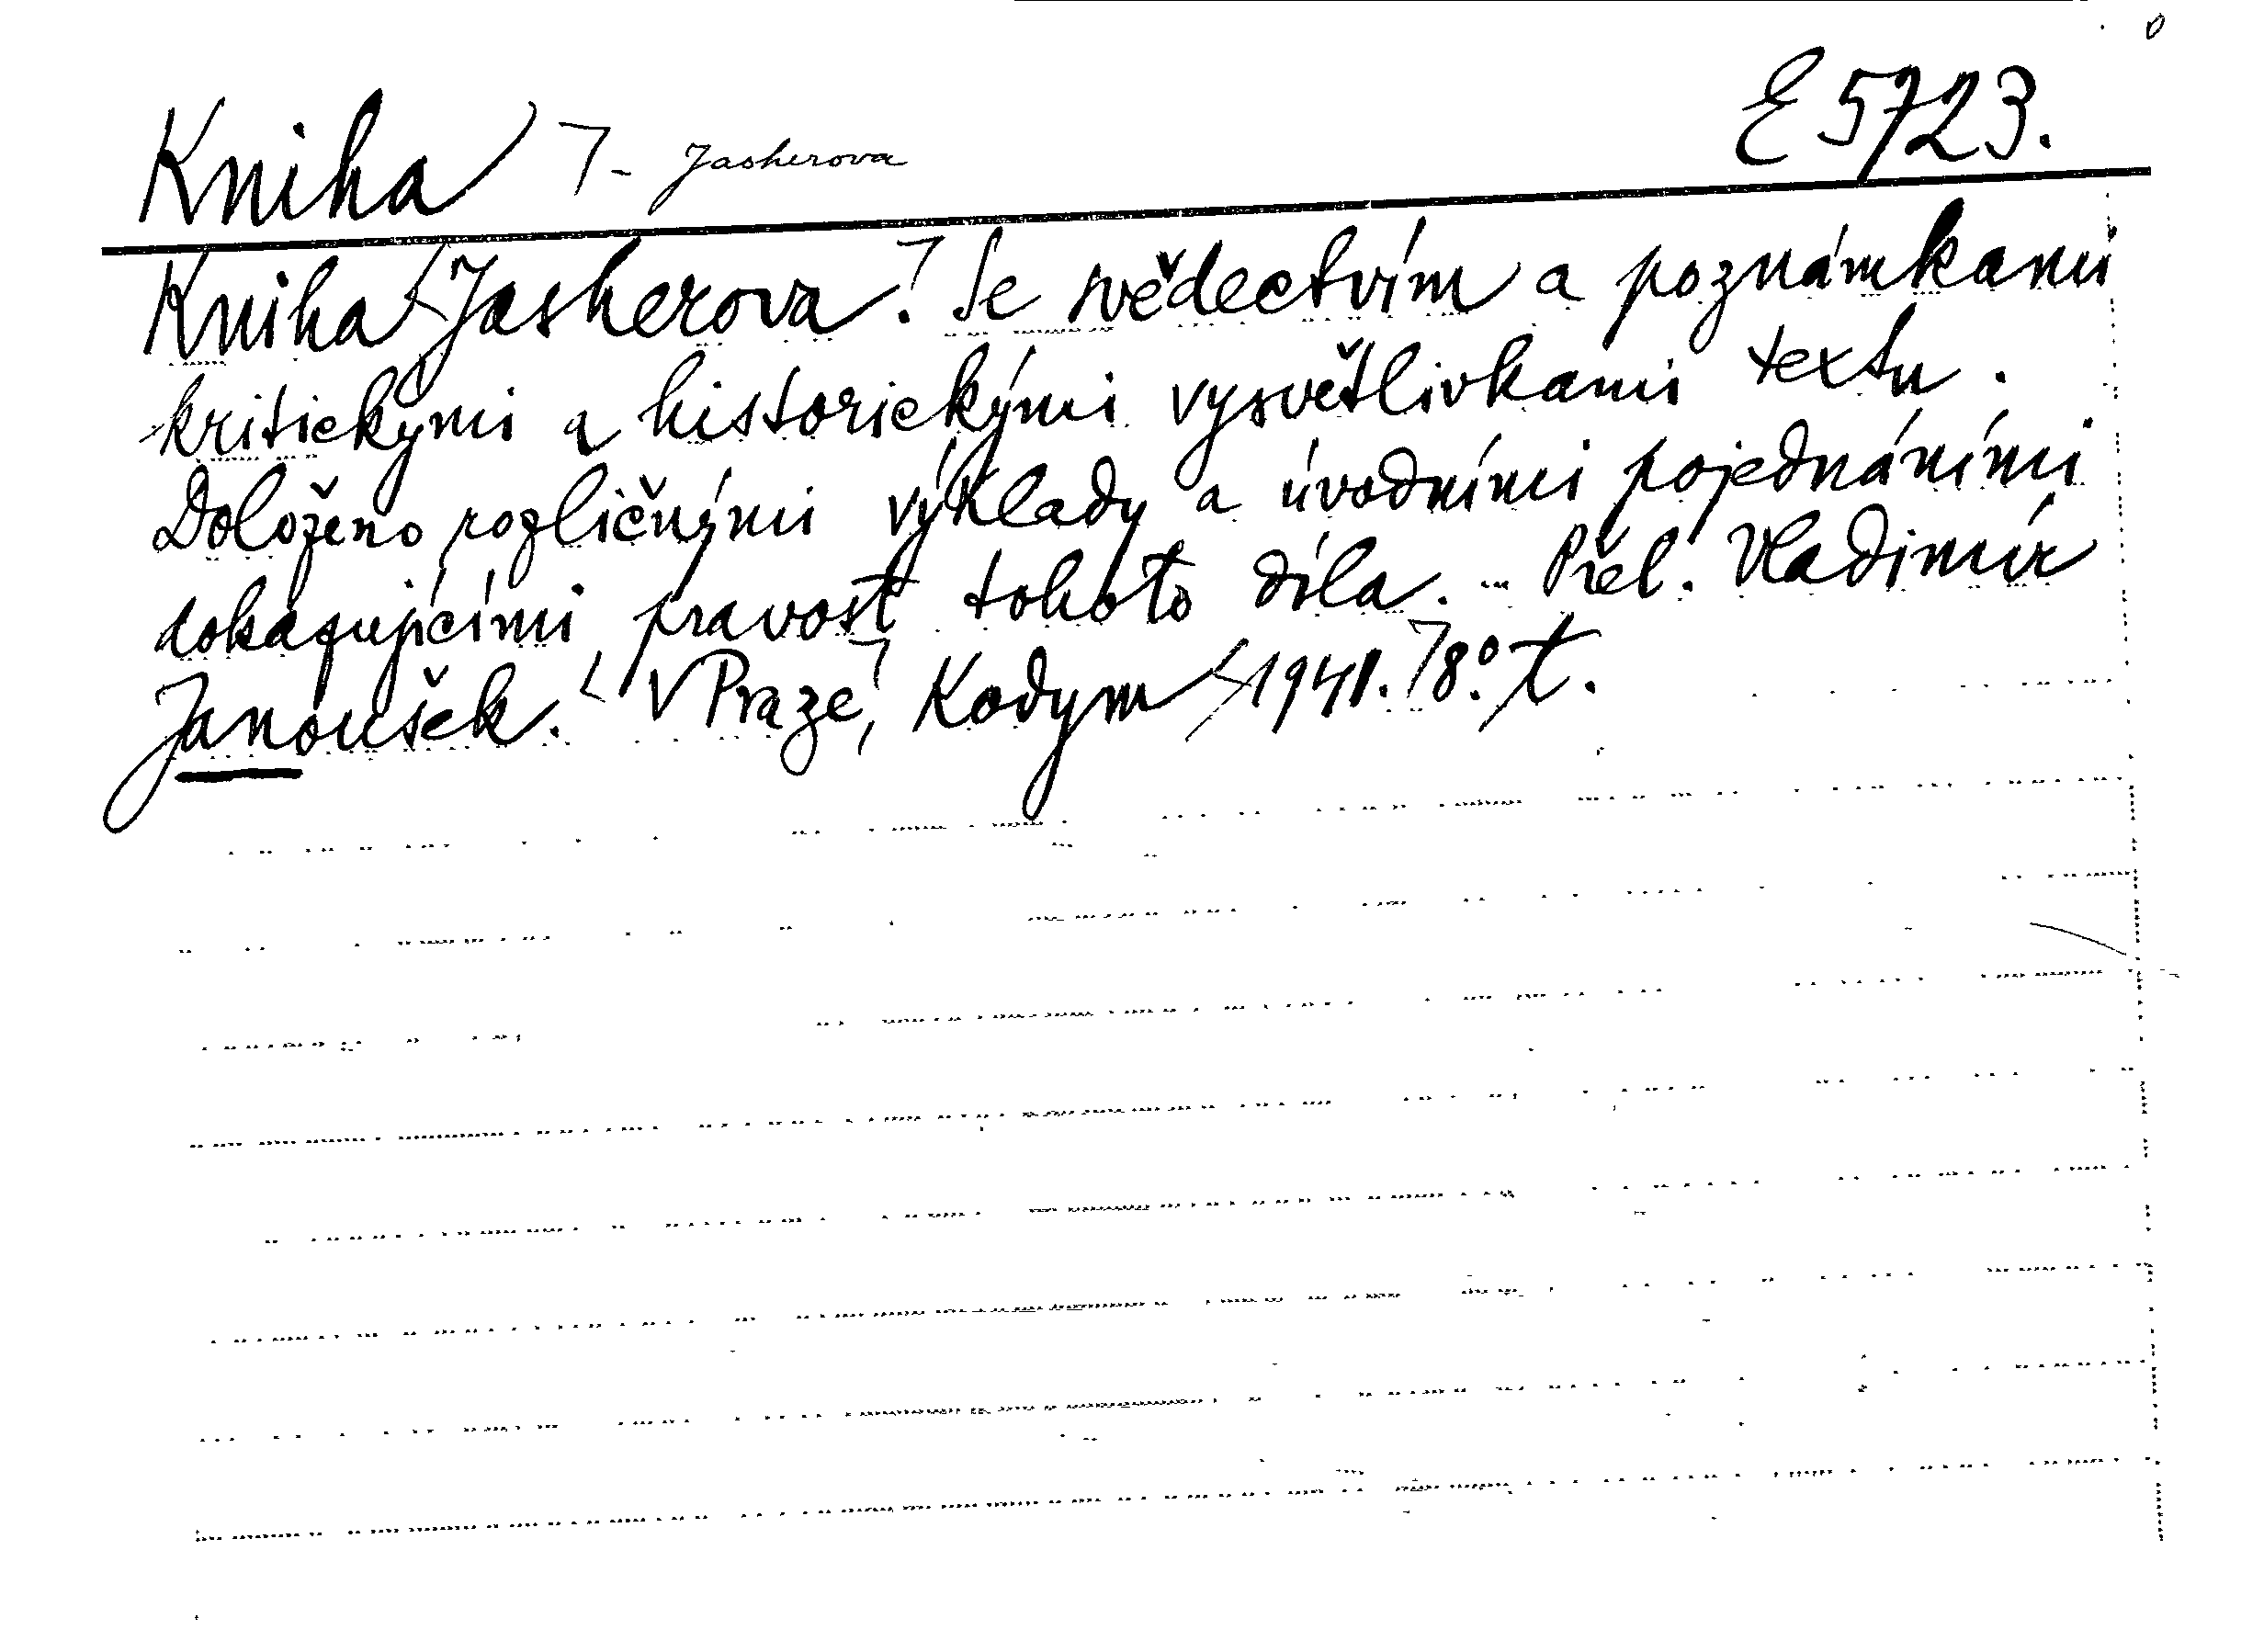 E 5723.
Kniha - Jasherova
Kniha Jasherova. Se svědectvím a poznámkami
kritickými a historickými vysvětlivkami textu.
Doloženo rozličnými výklady a úvodními pojednáními
dokazujícími pravost tohoto díla. - Přel. Vladimír
Janoušek. V Praze, Kodym 1941. 8°. t.